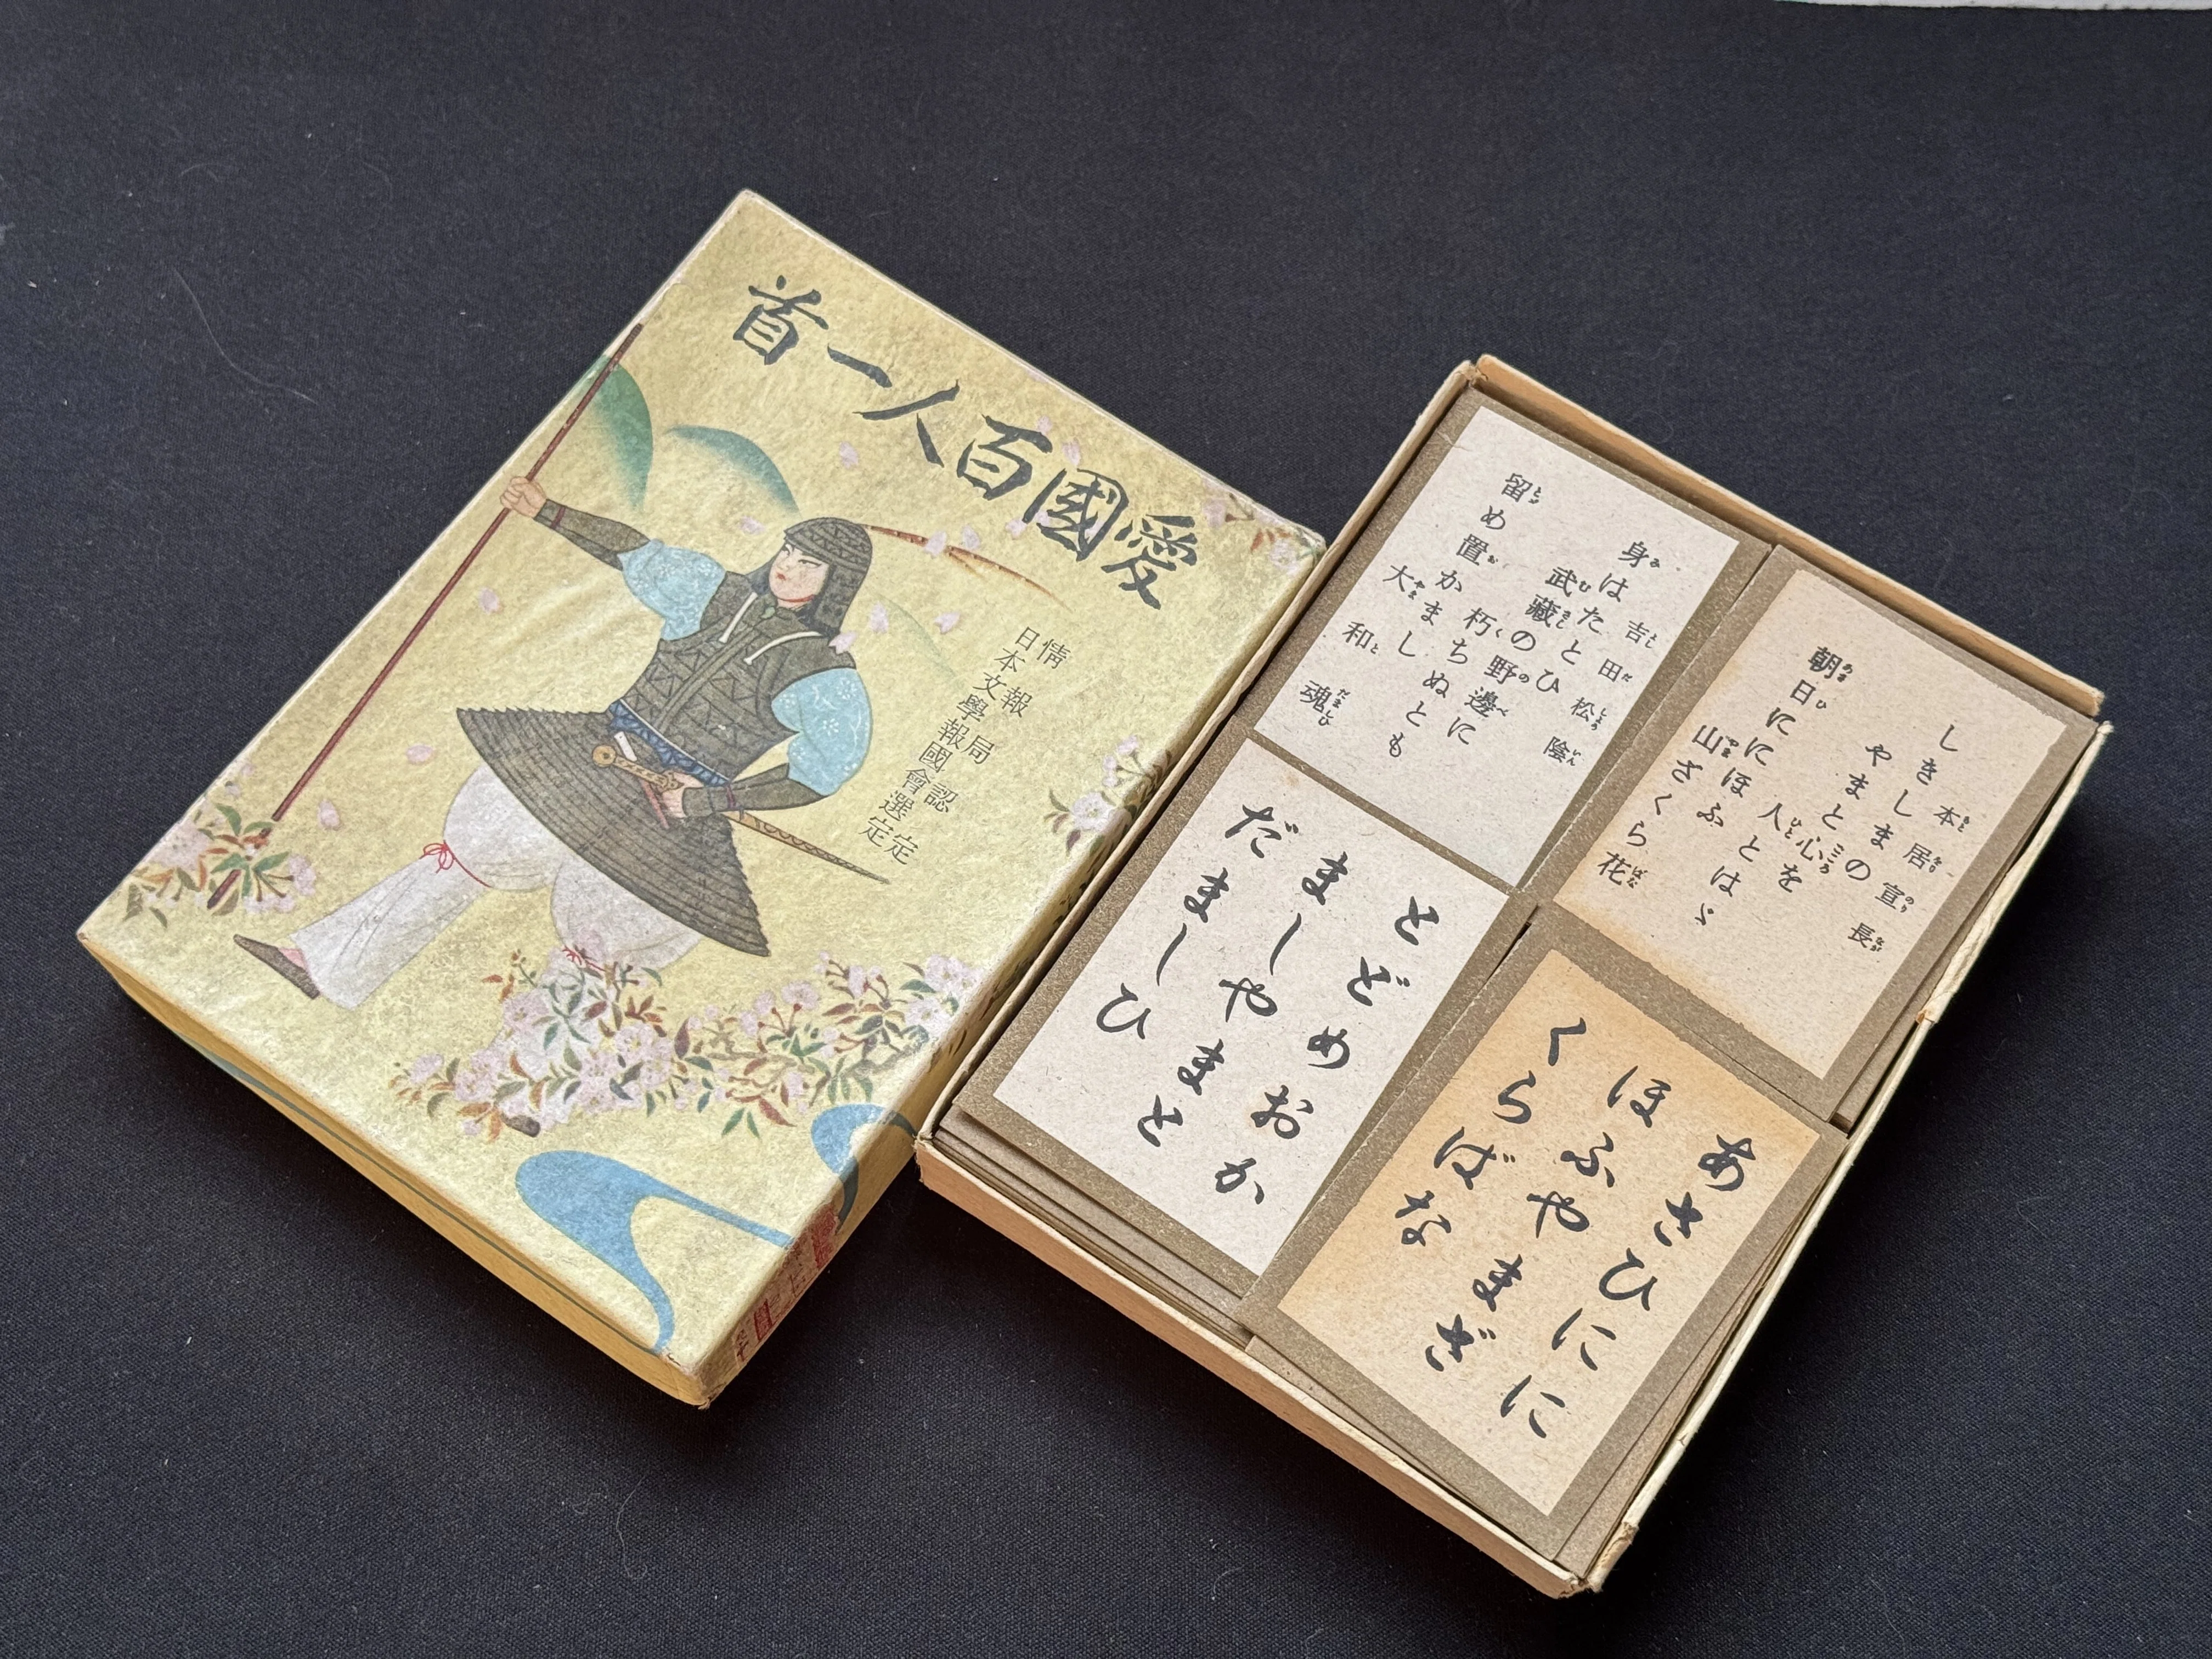 愛國百人一首
情報局認定
日本文學報國會選定
吉田松陰
身はたとひ
武藏の野邊に
朽ちぬとも
留め置かまし
大和魂
本居宣長
しきしまの
やまと心を
人とはゞ
朝日ににほふ
山ざくら花
とどめおか
ましやまと
だましひ
あさひにに
ほふやまざ
くらばな